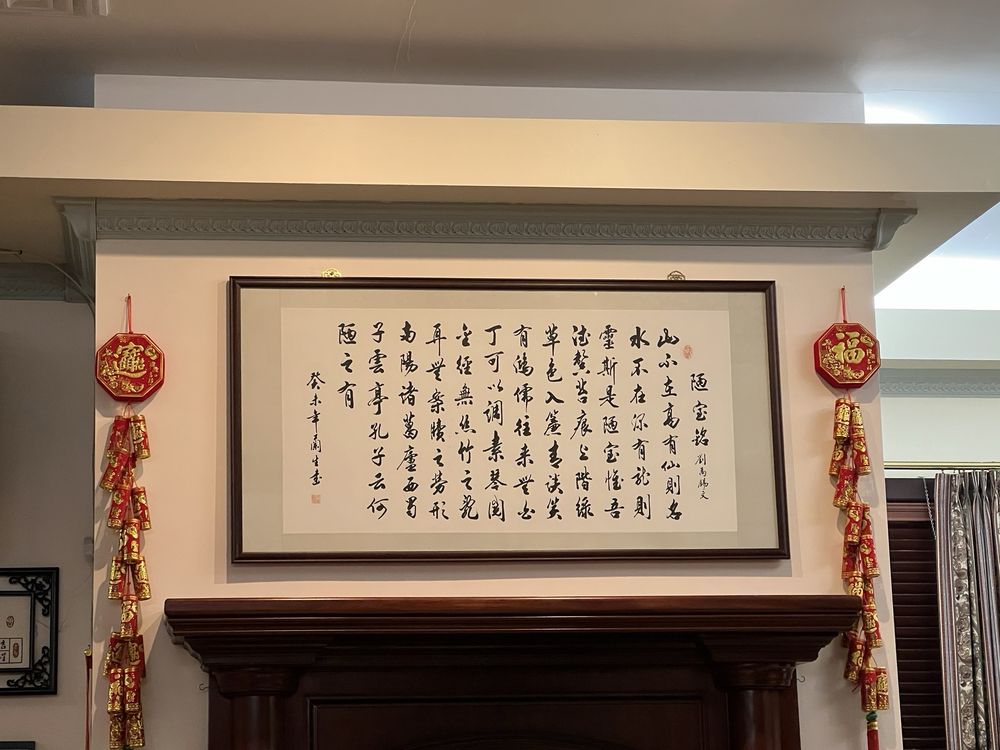 陋室铭 劉禹錫文
山不在高有仙則名
水不在深有龙則
靈斯是陋室惟吾
德馨苔痕上階綠
草色入簾青談笑
有鴻儒往来無白
丁可以調素琴閱
金經無丝竹之亂
耳無案牘之勞形
南陽诸葛廬西蜀
子雲亭孔子云何
陋之有
癸未年蘭生書
福